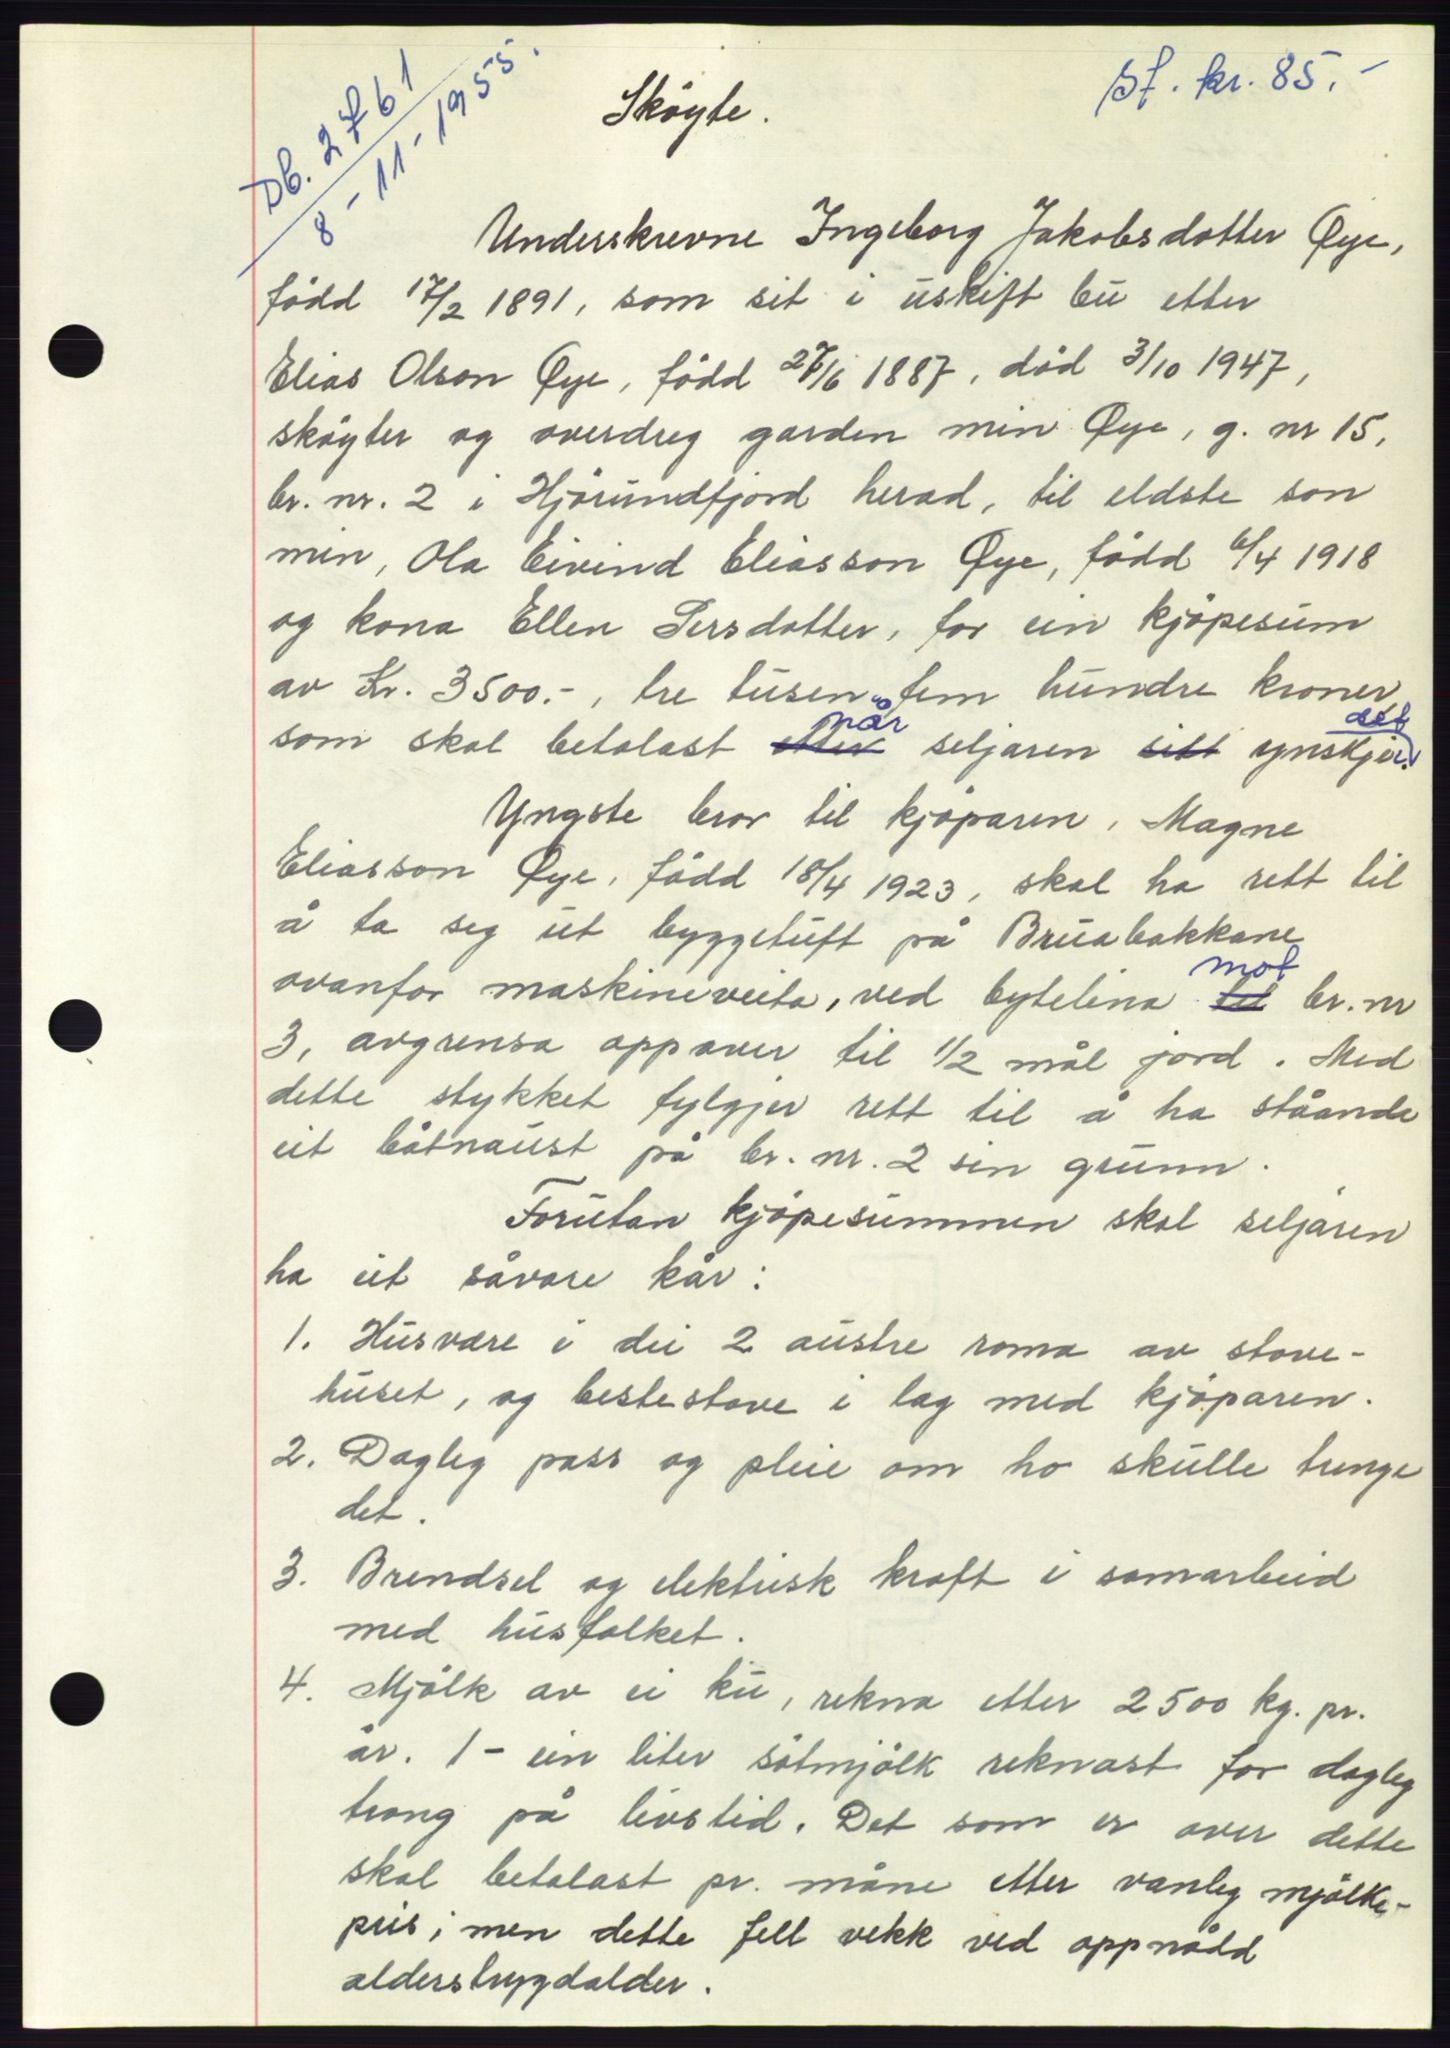 Db. 2761
8-11-1955.
St. kr. 85.-
Skøyte.
Underskrevne Ingeborg Jakobsdotter Øye,
fødd 17/2 1891, som sit i uskift bu etter
Elias Olson Øye, fødd 27/6 1887, død 3/10 1947,
skøyter og overdreg garden min Øye, g. nr 15,
br. nr. 2 i Hjørundfjord herad, til eldste son
min, Ola Eivind Eliasson Øye, fødd 6/4 1918
og kona Ellen Persdotter, for ein kjøpesum
av Kr. 3500.-, tre tusen fem hundre kroner
som skal betalast ~~etter~~ når seljaren ~~sitt~~ ynskjer det.
Yngste bror til kjøparen, Magne
Eliasson Øye, fødd 18/4 1923, skal ha rett til
å ta seg ut byggetuft på Bruabakkane
ovanfor maskineveita, ved bytelina ~~til~~ mot br. nr
3, avgrensa oppover til 1/2 mål jord. Med
dette stykket fylgjer rett til å ha ståande
eit båtnaust på br. nr. 2 sin grunn.
Forutan kjøpesummen skal seljaren
ha eit såvore kår:
1. Husvære i dei 2 austre roma av stove-
huset, og bestestove i lag med kjøparen.
2. Dagleg pass og pleie om ho skulle trenge
det.
3. Brendsel og elektrisk kraft i samarbeid
med husfolket.
4. Mjølk av ei ku, rekna etter 2500 kg. pr.
år. 1 - ein liter søtmjølk reknast for dagleg
trong på livstid. Det som er over dette
skal betalast pr. måne etter vanleg mjølke-
pris; men dette fell vekk ved oppnådd
alderstrygdalder.